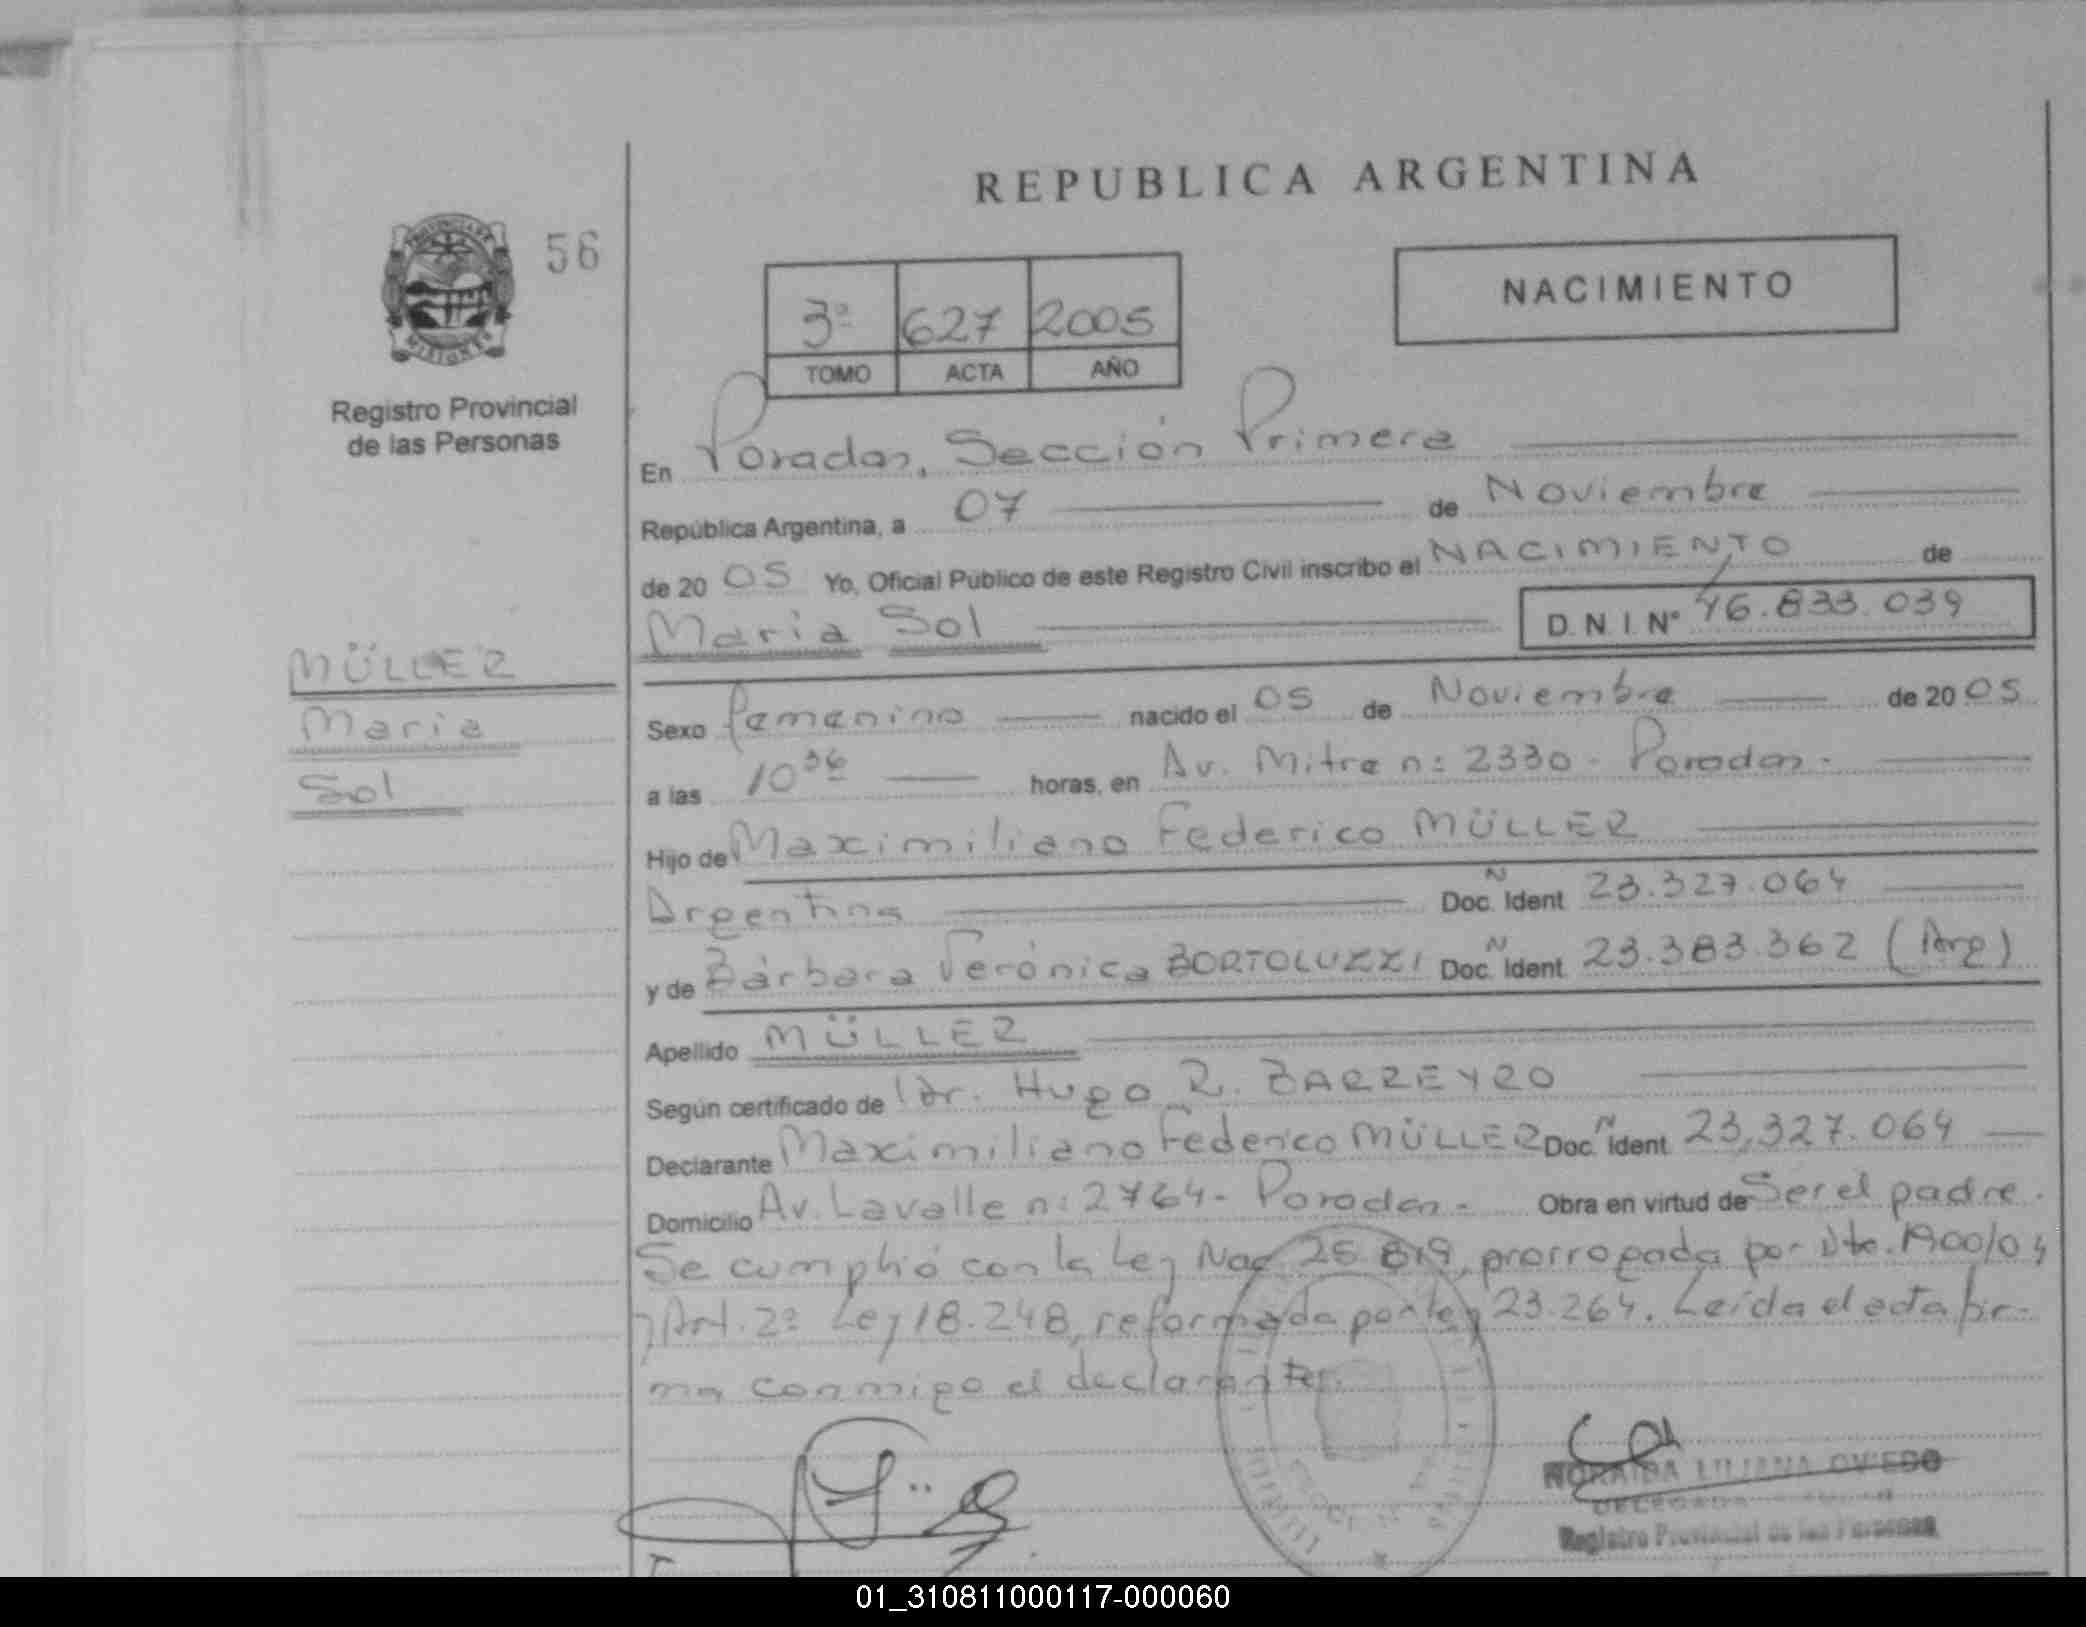 REPUBLICA ARGENTINA
56
NACIMIENTO
3º 627 2005
TOMO ACTA AÑO
MISIONES
Registro Provincial
de las Personas
En Posadas, Sección Primera
República Argentina, a 07 de Noviembre
de 20 05 Yo, Oficial Público de este Registro Civil inscribo el NACIMIENTO de
Maria Sol D.N.I. Nº 46.833.039
MÜLLER
Maria
Sol
Sexo femenino nacido el 05 de Noviembre de 20 05
a las 10 36 horas, en Av. Mitre nº 2330 - Posadas.
Hijo de Maximiliano Federico MÜLLER
Argentina Doc. Ident 23.327.064
y de Bárbara Verónica BORTOLUZZI Doc. Ident 23.383.362 (Arg)
Apellido MÜLLER
Según certificado de Dr. Hugo R. BARREYRO
Declarante Maximiliano Federico MÜLLER Doc. Ident 23.327.064
Domicilio Av. Lavalle nº 2764 - Posadas - Obra en virtud de Ser el padre.
Se cumplió con la Ley Nac 25.819, prorrogada por Dto. 1900/04
y Art. 2º Ley 18.248, reformada por ley 23.264. Leída el acta fir-
ma conmigo el declarante.
NORAIDA LILIANA OVIEDO
DELEGADA
Registro Provincial de las Personas
01_310811000117-000060